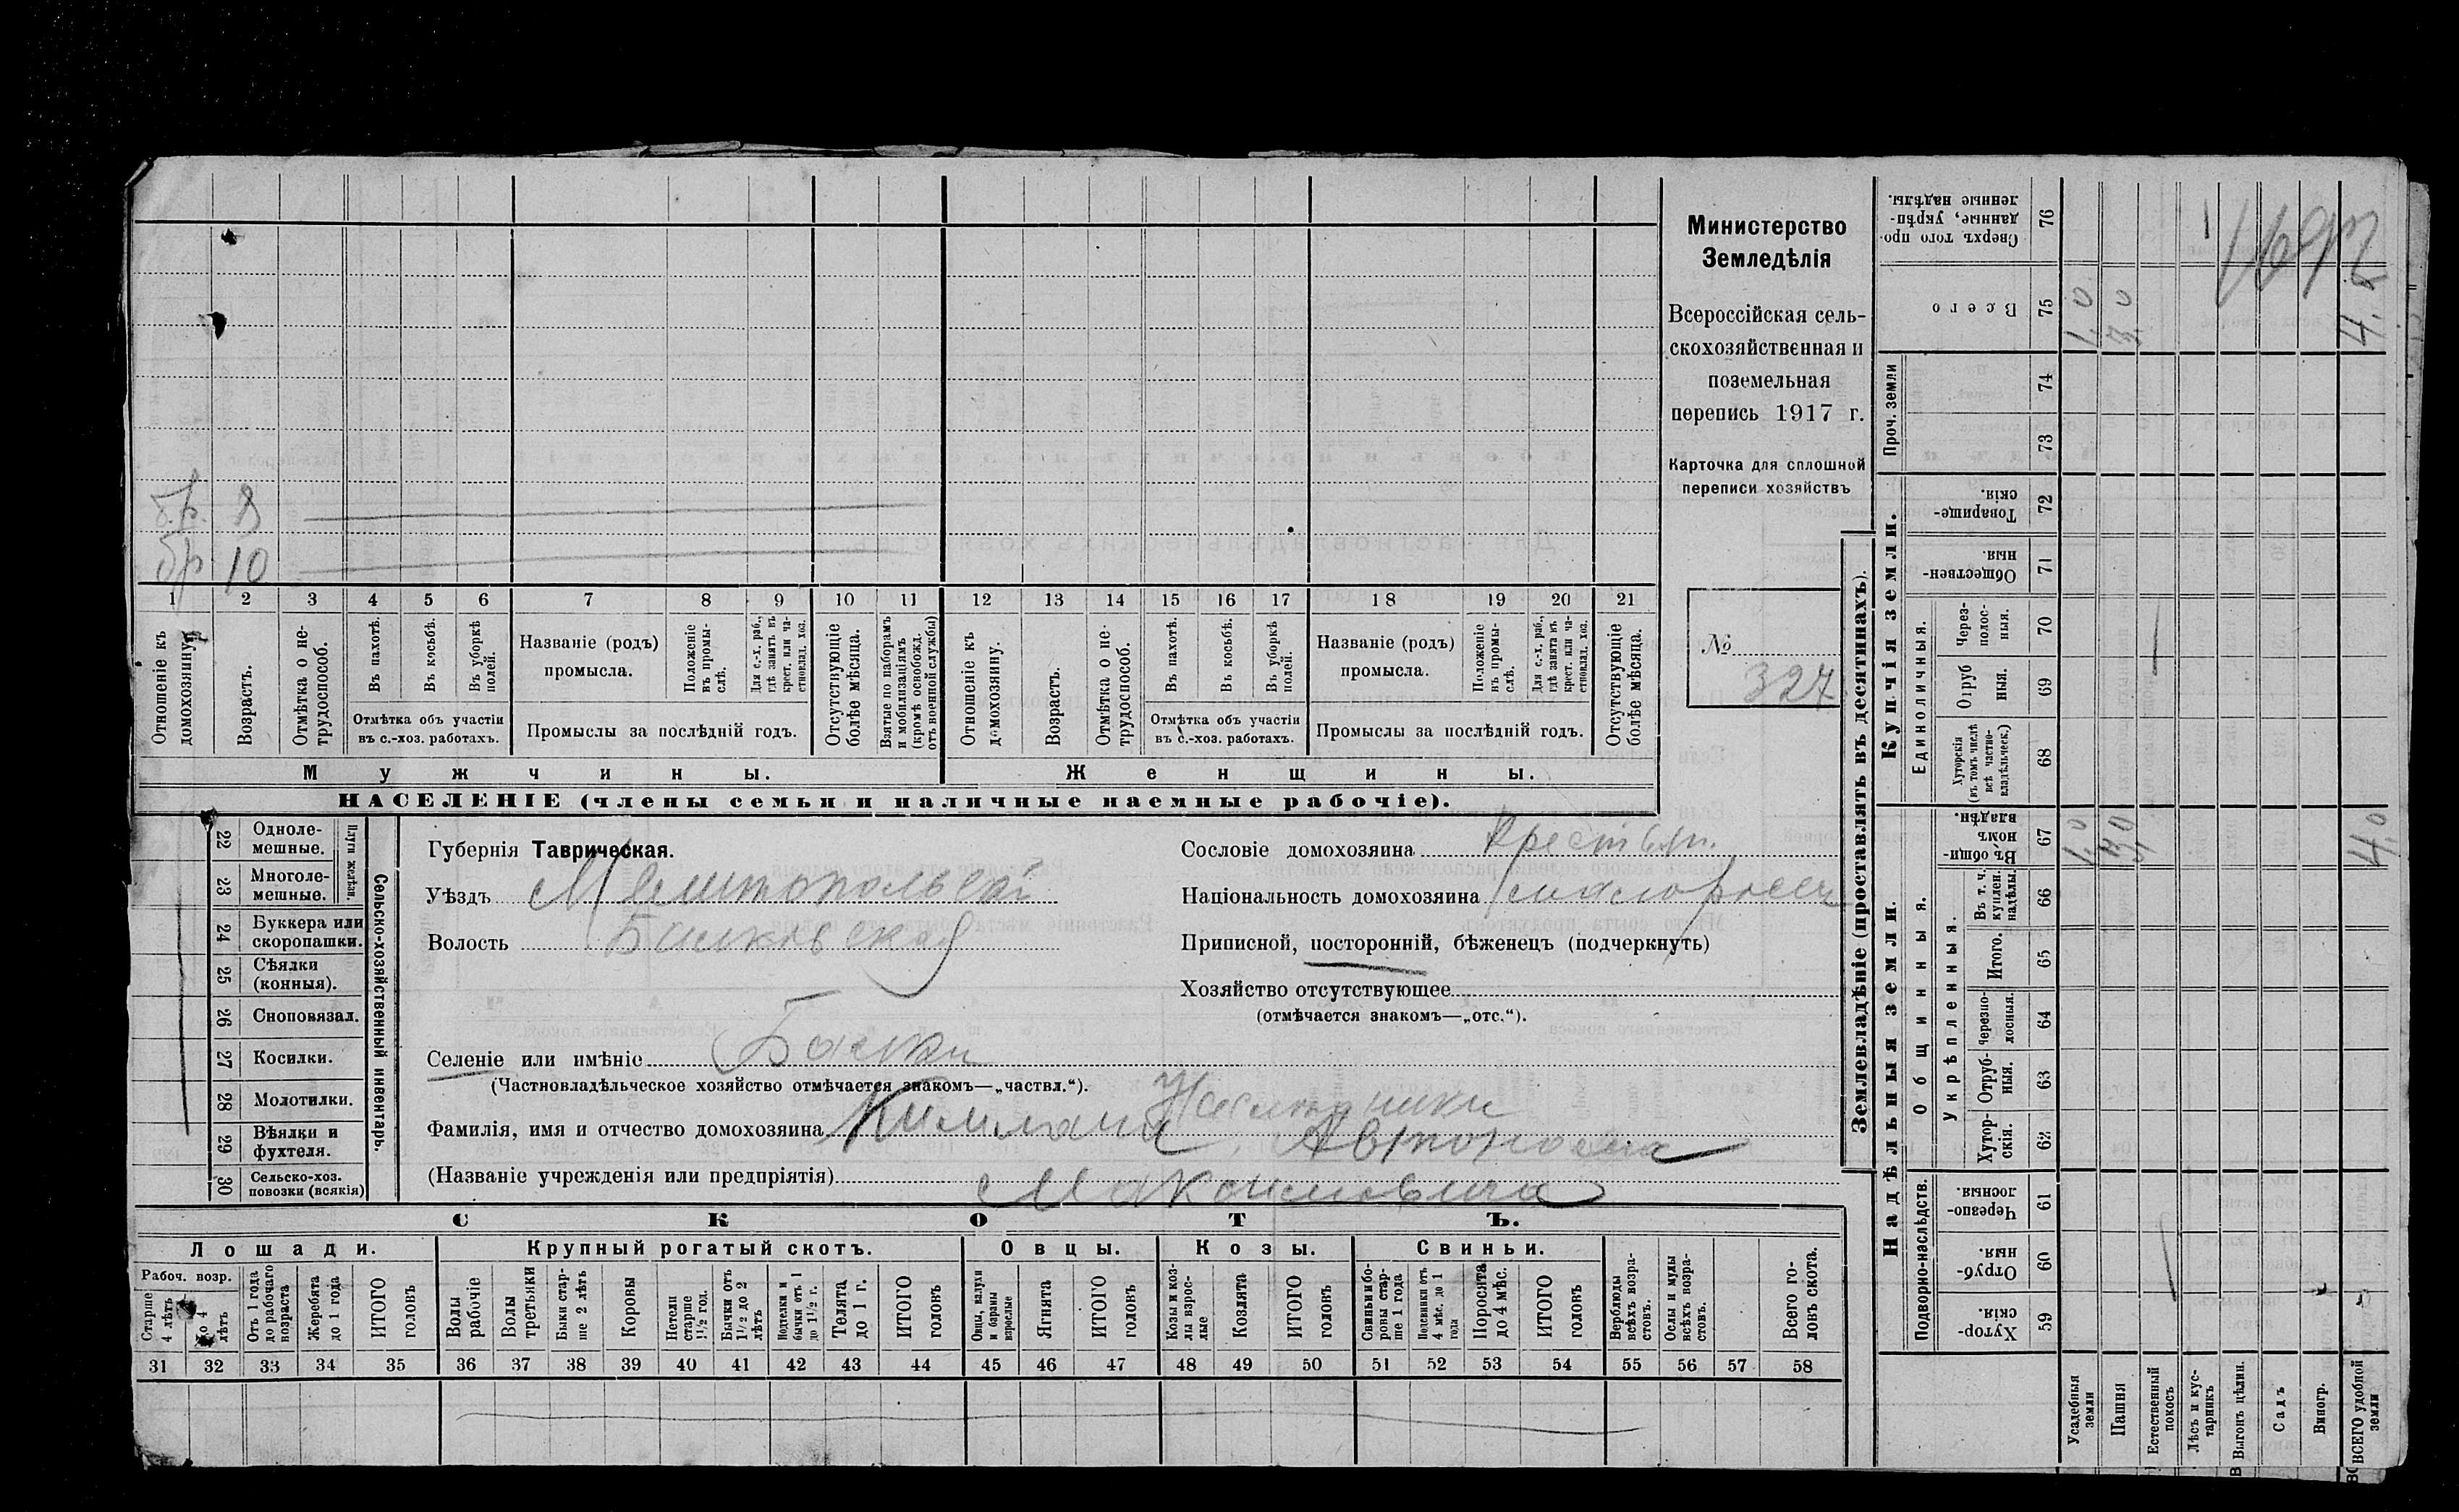 Министерство
Земледѣлія
Всероссійская сель-
скохозяйственная и
поземельная
перепись 1917 г.
Карточка для сплошной
переписи хозяйствъ
№ 327
бр. 8
бр 10
1 2 3 4 5 6 7 8 9 10 11 12 13 14 15 16 17 18 19 20 21
Отношеніе къ домохозяину.
Возрастъ.
Отмѣтка о не-трудоспособ.
Въ пахотѣ.
Въ косьбѣ.
Въ уборкѣ полей.
Отмѣтка объ участіи
въ с.-хоз. работахъ.
Названіе (родъ)
промысла.
Положеніе въ промы-слѣ.
Для с.-х. раб., гдѣ занятъ въ крест. или ча-стновлад. хоз.
Промыслы за послѣдній годъ.
Отсутствующіе болѣе мѣсяца.
Взятые по наборамъ и мобилизаціямъ (кромѣ освобожд. отъ военной службы)
Отношеніе къ домохозяину.
Возрастъ.
Отмѣтка о не-трудоспособ.
Въ пахотѣ.
Въ косьбѣ.
Въ уборкѣ полей.
Отмѣтка объ участіи
въ с.-хоз. работахъ.
Названіе (родъ)
промысла.
Положеніе въ промы-слѣ.
Для с.-х. раб., гдѣ занята въ крест. или ча-стновлад. хоз.
Промыслы за послѣдній годъ.
Отсутствующіе болѣе мѣсяца.
Мужчины.
Женщины.
НАСЕЛЕНІЕ (члены семьи и наличные наемные рабочіе).
Сельско-хозяйственный инвентарь.
Плуги желѣзн.
22 Одноле-мешные.
23 Многоле-мешные.
24 Буккера или скоропашки.
25 Сѣялки (конныя).
26 Сноповязал.
27 Косилки.
28 Молотилки.
29 Вѣялки и фухтеля.
30 Сельско-хоз. повозки (всякія)
Губернія Таврическая.
Уѣздъ Мелитопольскі
Волость Балковская
Селеніе или имѣніе Балки
(Частновладѣльческое хозяйство отмѣчается знакомъ—„частвл.“).
Фамилія, имя и отчество домохозяина
Автонома
(Названіе учрежденія или предпріятія)
Максимовича
Сословіе домохозяина Крестьян.
Національность домохозяина малоросс
Приписной, посторонній, бѣженецъ (подчеркнуть)
Хозяйство отсутствующее
(отмѣчается знакомъ—„отс.“).
СКОТЪ.
Лошади.
Рабоч. возр.
Старше 4 лѣтъ
До 4 лѣтъ
Отъ 1 года до рабочаго возраста
Жеребята до 1 года
ИТОГО головъ
Крупный рогатый скотъ.
Волы рабочіе
Волы третьяки
Быки стар-ше 2 лѣтъ
Коровы
Нетели старше 1½ год.
Бычки отъ 1½ до 2 лѣтъ
Подтелки и бычки отъ 1 до 1½ г.
Телята до 1 г.
ИТОГО головъ
Овцы.
Овцы, валухи и бараны взрослые
Ягнята
ИТОГО головъ
Козы.
Козы и коз-лы взрос-лые
Козлята
ИТОГО головъ
Свиньи.
Свиньи и бо-ровы стар-ше 1 года
Подсвинки отъ 4 мѣс. до 1 года
Поросята до 4 мѣс.
ИТОГО головъ
Верблюды всѣхъ возра-стовъ.
Ослы и мулы всѣхъ возра-стовъ.
Всего го-ловъ скота.
31 32 33 34 35 36 37 38 39 40 41 42 43 44 45 46 47 48 49 50 51 52 53 54 55 56 57 58
Землевладѣніе (проставлять въ десятинахъ).
Сверхъ того про-данные, укрѣп-ленные надѣлы. 76
Всего 75 1,0 3,0 4,0
Купчія земли.
Проч. земли
74
73
Товарище-скія. 72
Обществен-ныя. 71
Единоличныя.
Через-полос-ныя. 70
Отруб ныя. 69
Хуторскія (въ томъ числѣ всѣ частно-владѣльческ.) 68
Надѣльныя земли.
Общинныя.
Въ общи-номъ владѣн. 67 1,0 3,0 4,0
Укрѣпленныя.
Въ т. ч. куплен. надѣлы. 66
Итого. 65
Черезпо-лосныя. 64
Отруб-ныя. 63
Хутор-скія. 62
Подворно-наслѣдств.
Черезпо-лосныя. 61
Отруб-ныя. 60
Хутор-скія. 59
Усадебныя земли
Пашня
Естественный покосъ
Лѣсъ и кус-тарникъ
Выгонъ цѣлин.
Садъ
Виногр.
ВСЕГО удобной земли